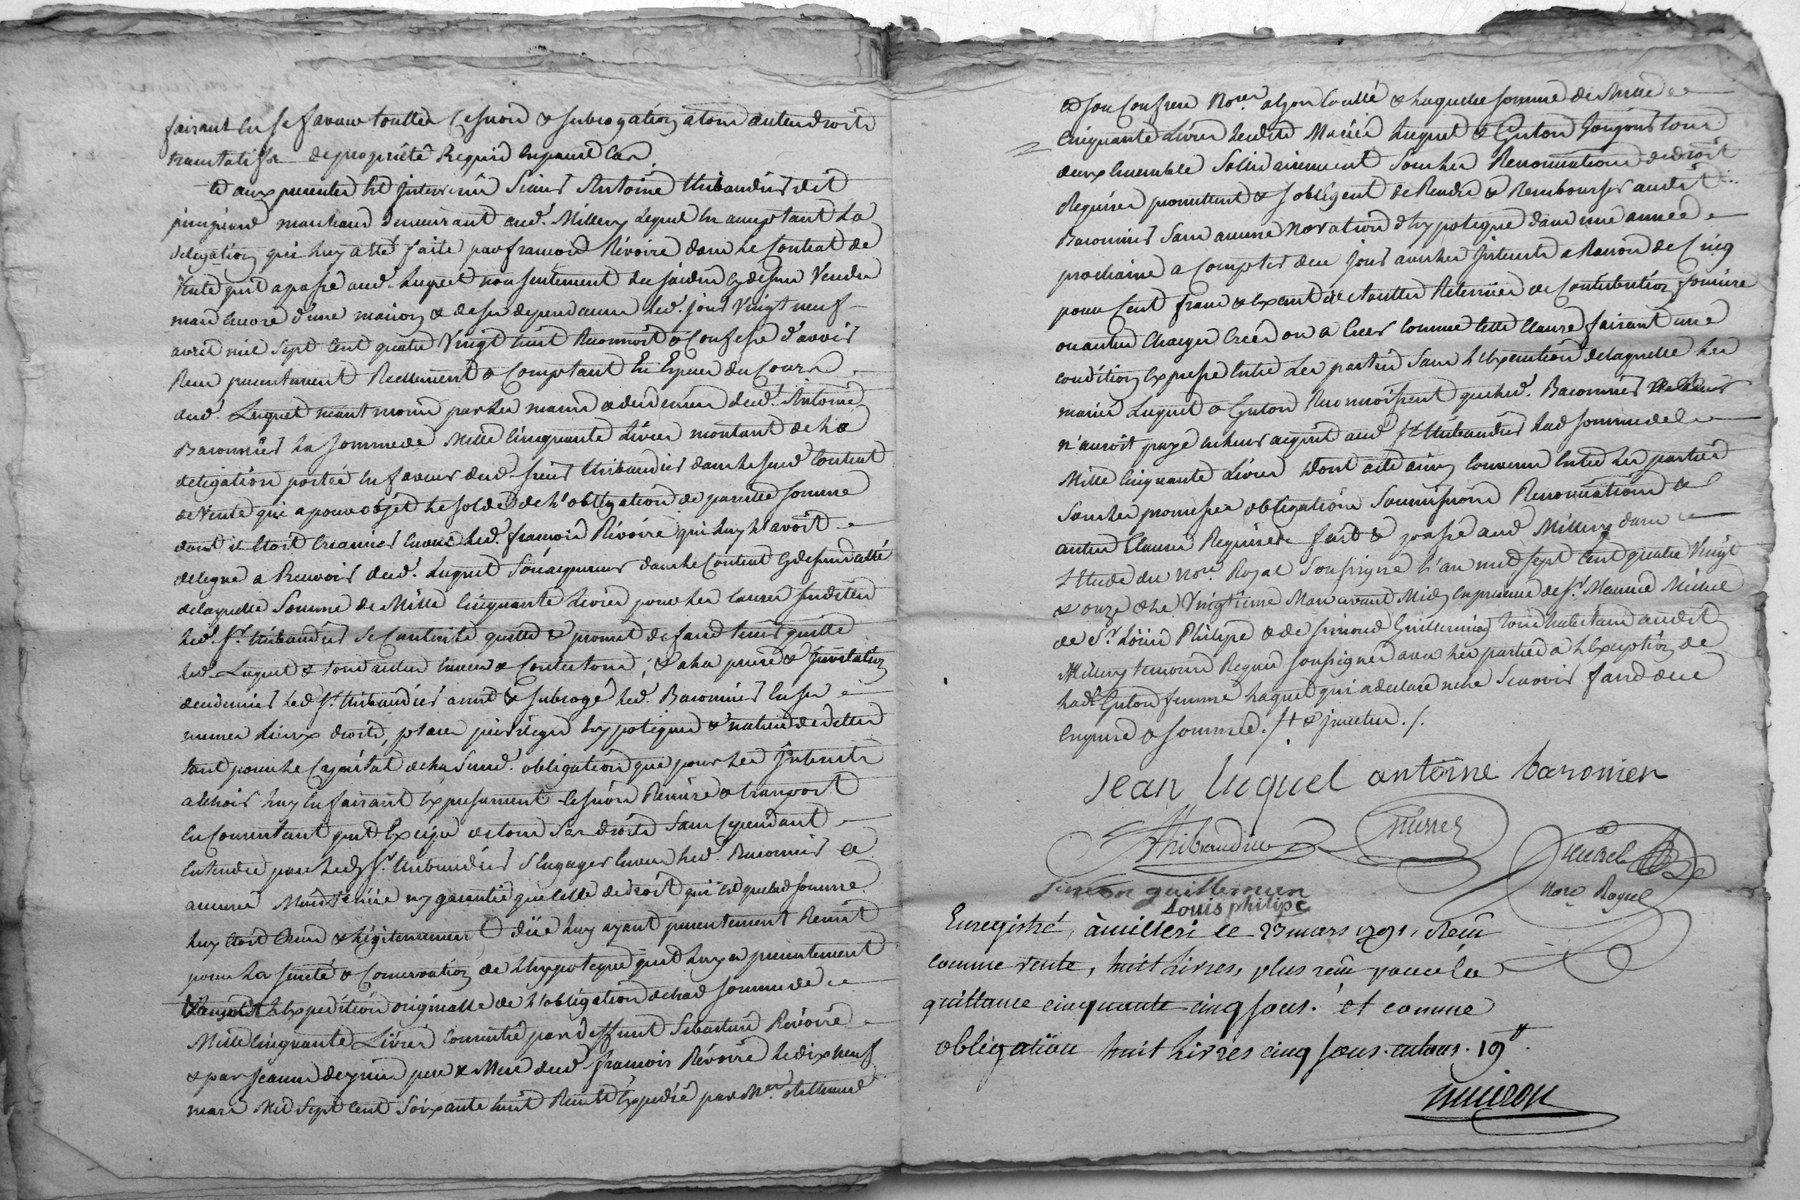 faisant en sa faveur touttes cessions & subrogations à tous autres droits
translatifs de propriété Requis en pareil cas
et aux presentes est intervenu Sieur Antoine Thibaudier dit
marchand demeurant aud. Millery Lequel en acceptant La
délégation qui luy a été faite par françois Révoire dans Le Contrat de
Vente qu'il a passé aud. Luquet non seulement du jardin cy dessus Vendu
mais encore d'une maison & de ses dependances Led. jour Vingt neuf
avril mil sept Cent quatre Vingt huit Reconnoit & Confesse d'avoir
Reçu presentement Reellement & Comptant En Especes du Cours
dud. Luquet neant moins par les mains & des deniers dud. Antoine
Baronnier La somme de Mille Cinquante Livres montant de La
deligation portée en faveur dud. sieur thibaudier dans le susd. Contrat
de Vente qui a pour objet Le solde de l'obligation de pareille somme
dont il étoit Créancier envers Led. françois Révoire qui luy l'avoit
delegué a Recevoir dud. Luquet Son acquereur dans le Contrat cy dessus datté
de laquelle Somme de Mille Cinquante Livres pour les causes susdites
Led. Sr. thibaudier se Contente quitte & promet de faire tenir quitte
Led. Luquet & tous autres envers & Contre tous; & a la priere & Invitation
des deniers led. Sr. thibaudier a mis & subrogé Led. Baronnier En ses
mêmes Lieux droits, places privileges hypoteques & nature de dettes
tant pour Le Capital de La Susd. obligation que pour Les Interets
a Echoir luy en faisant Expressement Cession Remise & transport
En Consentant qu'il Exige & tous ses droits Sans Cependant
Entendre par Led. Sr. thibaudier S'engager Envers Led. Baronnier a
aucune Maintenüe ny garantie que celle de droit qui est que lad. somme
luy étoit Bien & Légitimement Düe luy ayant presentement Remis
pour La sureté & Conservation de L'hypoteque qu'il luy a presentement
L'Expédition originalle de l'obligation de Lad. somme de
Mille Cinquante Livres Consentie par deffunt Sebastien Révoire
& par Jeanne pere & Mere dud. françois Révoire Le dix neuf
mars Mil Sept Cent Soixante huit Expedié par Me.
& son Confrere Nores. & Laquelle somme de Mille
Cinquante Livres Lesdits Mariés Luquet & Guton Conjoins tous
deux Ensemble Solidairement Sous les Renonciations de droit
Requises promettent & s'obligent de Rendre & Rembourser audit
Baronnier Sans aucune Novation d'hypoteque dans une année
prochaine a Compter de ce jour avec les Interets a Raison de Cinq
pour Cent franc & Exempt de toutte Retenue de Contribution fonciere
ou autres Charges Créés ou a Créer Comme cette Clause faisant une
condition Expresse Entre Les parties Sans L'Execution de laquelle les
mariés Luquet & Guton Reconnoissent que led. Baronnier
n'auroit payé a leurs acquit aud. Sr. thibaudier Lad. somme de
Mille Cinquante Livres Dont acte ainsy Convenu Entre Les parties
Sous les promesses obligations Soumissions Renonciations &
autres Clauses Requises fait & passé aud. Millery dans
L'Etude du Nore. Royal Soussigné L'an mil sept Cent quatre Vingt
& onze & le Vingtieme Mars avant Midy En presence de Sr. Maurice Michel
de Sr. Loüis Philipe & de simond Guillermin tous habitans audit
Millery temoins Requis soussignés avec les parties a l'Exception de
lad. Guton femme Luquet qui a declaré ne le Scavoir faire de ce
Enquise & sommée ./. & jnsetus ./.
Jean luquel antoine baronier
Thibaudier
Michel
Nore Royal
simeon guillermien
Louis philipe
Enregistré, à milleri le 23 mars 1791, Reçu
comme vente, huit Livres, plus reçu pour la
quittance cinquante cinq sous. et comme
obligation huit Livres cinq sous. entous. 19tt.